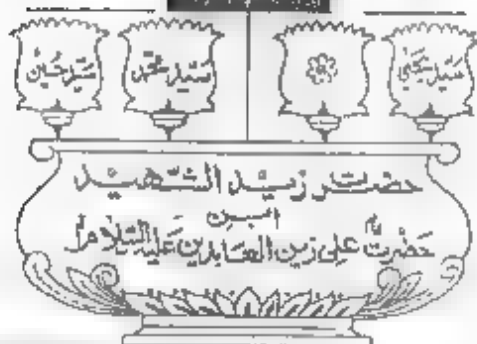 سید یحییٰ
سید محمد
سید حسین
حضرت زید الشہید
ابن
حضرت امام علی زین العابدین علیہ السلام